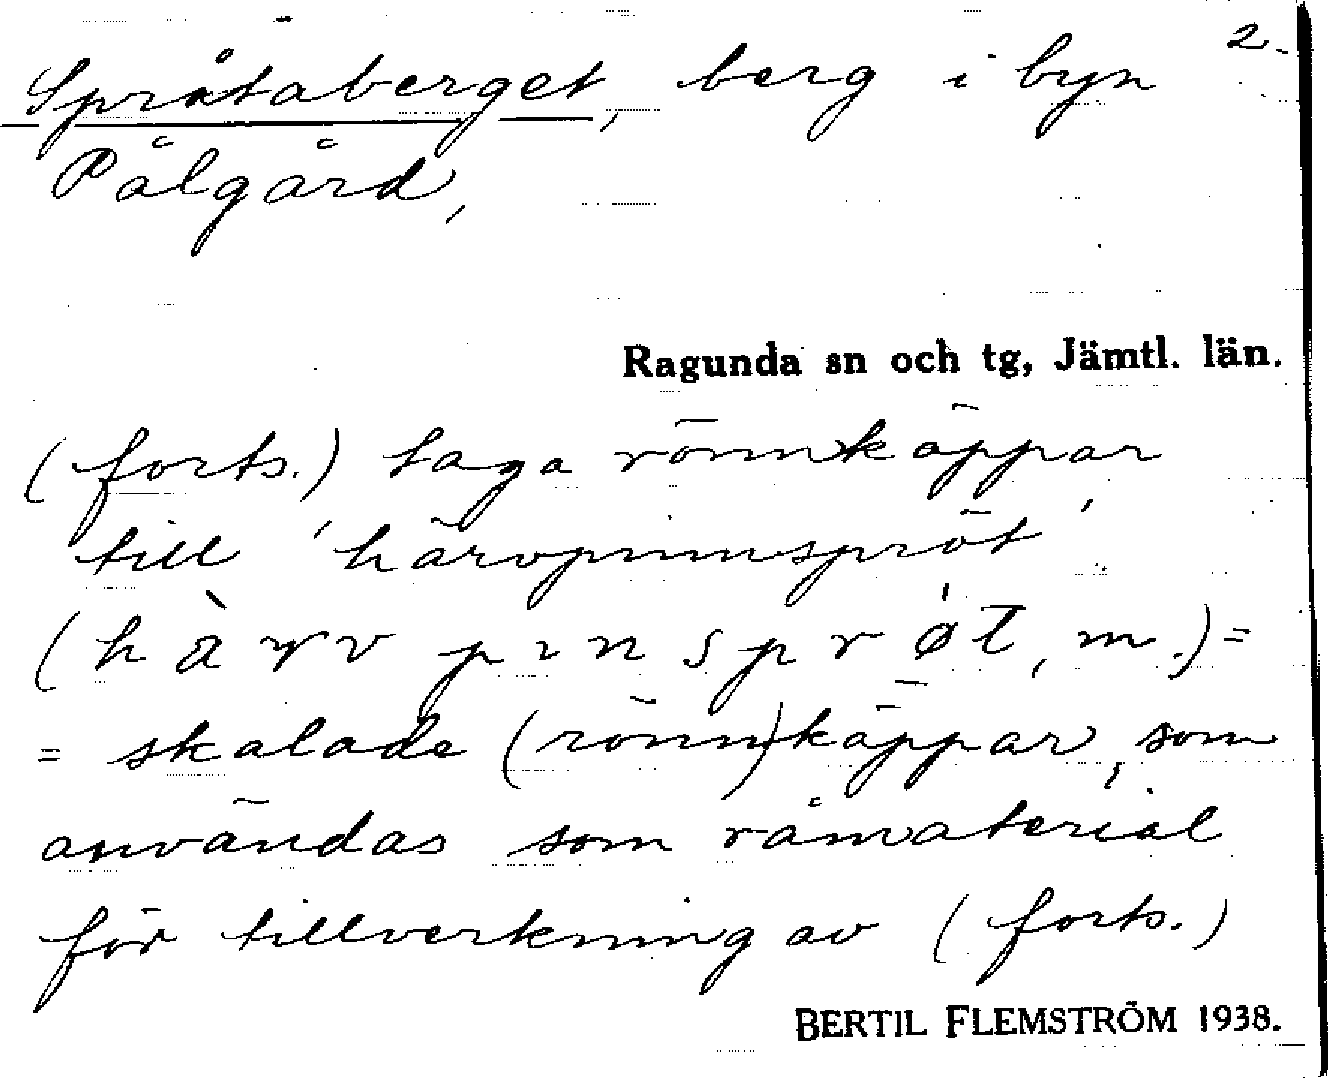 2.
Språtaberget, berg i byn
Pålgård,
Ragunda sn och tg, Jämtl. län.
(forts.) taga rönnkäppar
till 'härvpinnspröt'
(hàrv pın sprøt, m.) =
= skalade (rönn)käppar, som
användas som råmaterial
för tillverkning av (forts.)
BERTIL FLEMSTRÖM 1938.